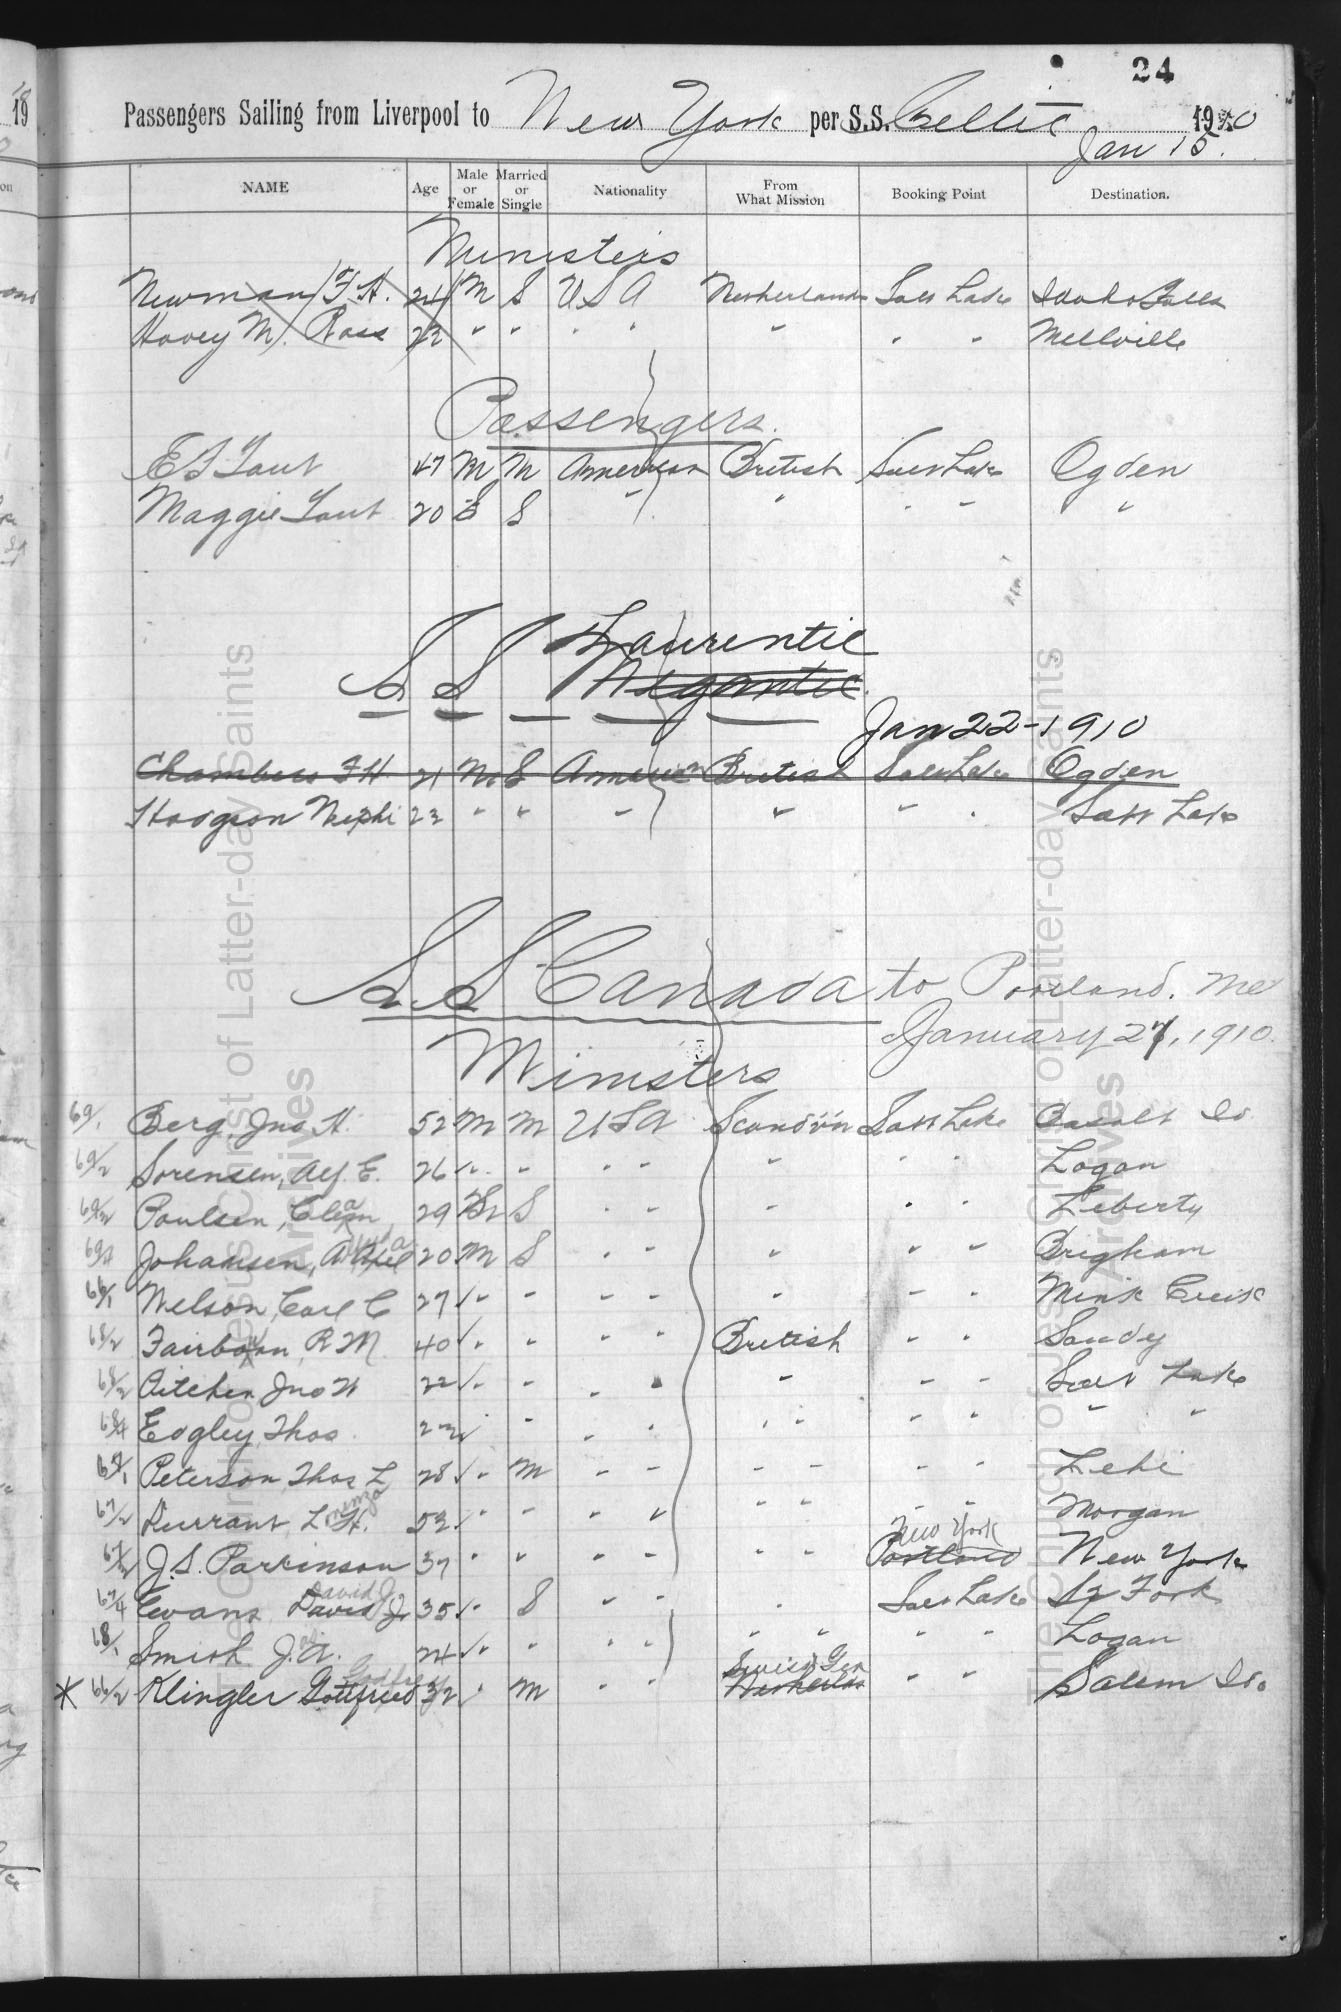 24
Passengers Sailing from Liverpool to New York per S.S. Celtic 1910
Jan 15.
NAME Age Male or Female Married or Single Nationality From What Mission Booking Point Destination.
Ministers
Newman, F. H. 24 M S U S A Netherlands Salt Lake Idaho Falls
Hovey M. Ross 22 " " " " " " " Mellville
Passengers.
E T Taut 47 M M American British Salt Lake Ogden
Maggie Taut 20 S " " " " "
S S Laurentic
Megantic
Jan 22-1910
Chambers F H 21 M S American British Salt Lake Ogden
Hodgson Nephi 23 " " " " " " Salt Lake
S. S Canada to Portland. Me
January 27, 1910.
Ministers
69/1 Berg, Jno H. 52 M M U S A Scandvn Salt Lake Basalt Id
69/2 Sorensen, Alf. E. 26 " " " " " " " Logan
69/3 Poulsen, 29 S " " " " " Liberty
69/4 Johansen, A 20 M S " " " " " Brigham
66/1 Nelson, Carl C 27 " " " " " " " Mink Creek
68/2 Fairbourn, R M 40 " " " " British " " Sandy
Aitchen, Jno W 22 " " " " " " " Salt Lake
68/4 Edgley, Thos. 23 " " " " " " " " " "
67/1 Peterson Thos L 28 " M " " " " " " Lehi
67/2 Durrant, L H. 53 " " " " " " " " Morgan
New York
67/3 J. S. Parkinson 37 " " " " " " Portland New York
David J
67/4 Evans David J 35 " S " " " Salt Lake Sp Fork
68/1 Smith J. A. 24 " " " " " " " " Logan
Swiss & Ger
* 66/2 Klingler Gottfried 32 " M " " Netherlan " " Salem Id.
The Church of Jesus Christ of Latter-day Saints
Archives
The Church of Jesus Christ of Latter-day Saints
Archives